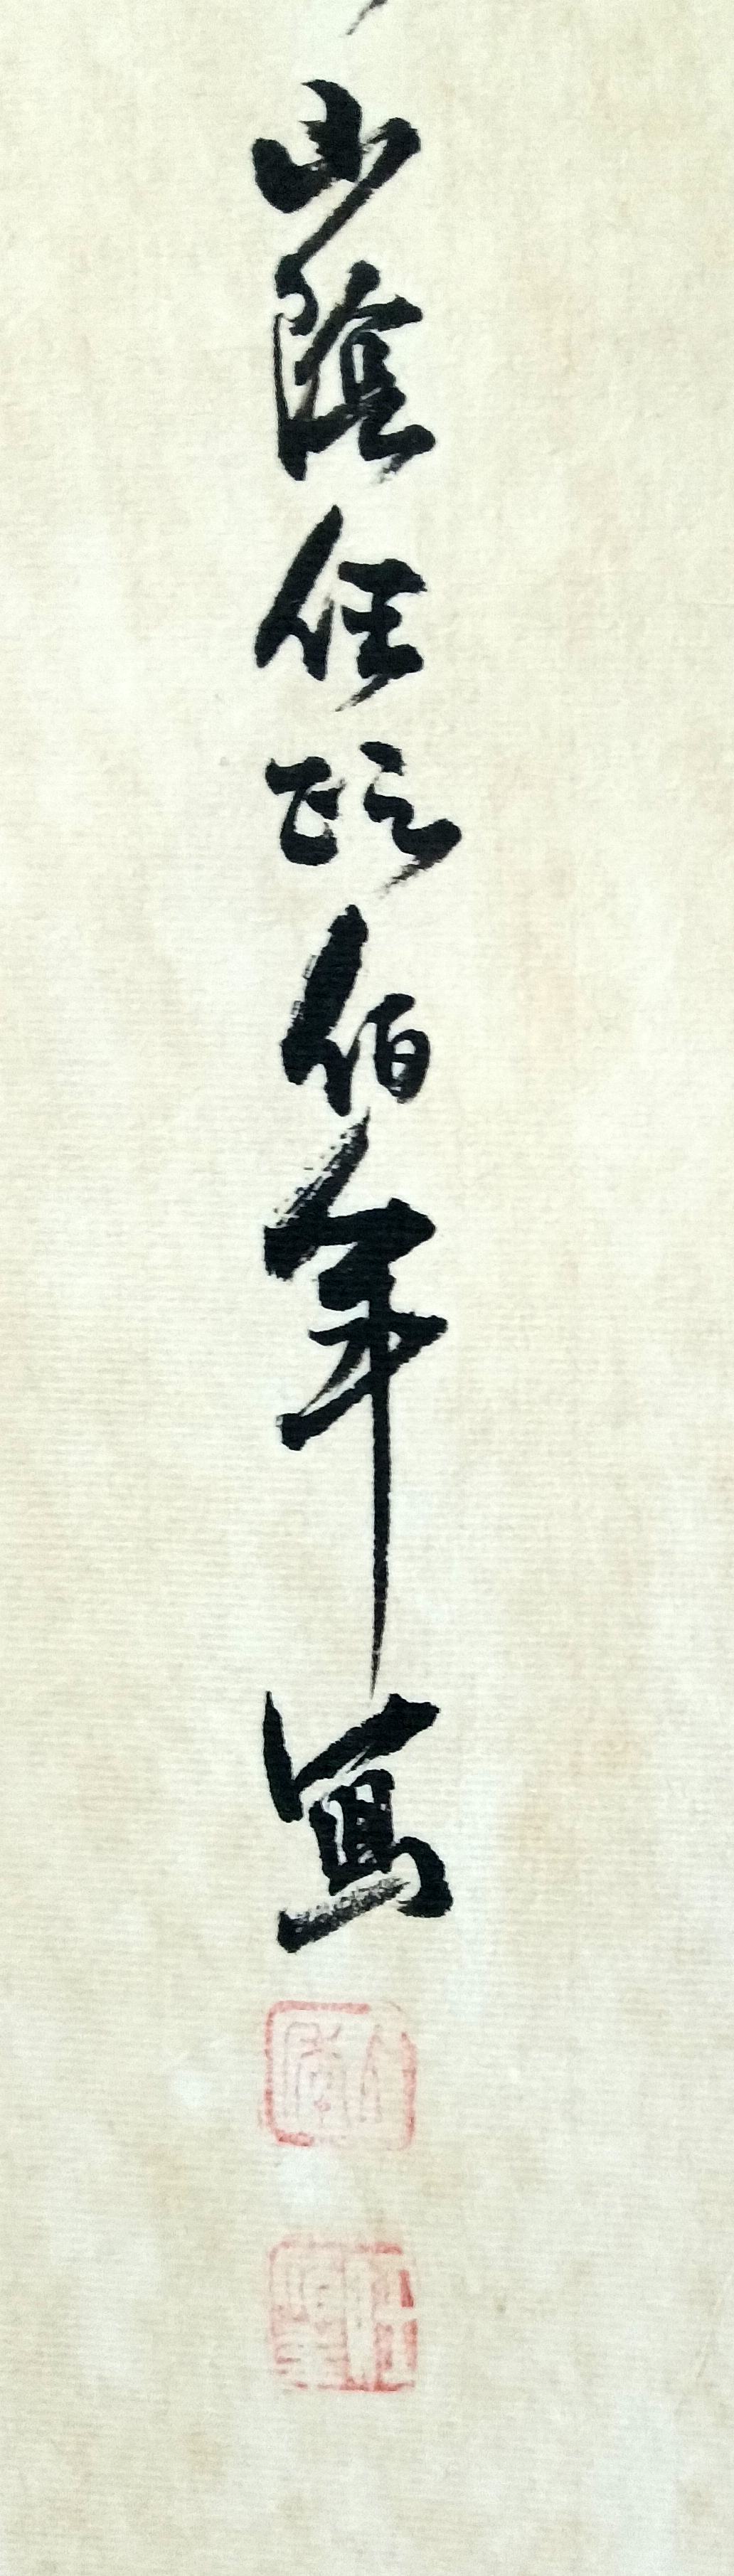 山陰任頤伯年寫